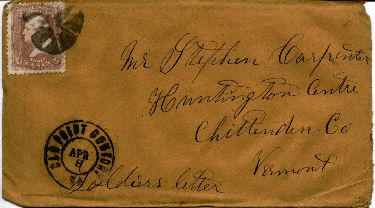 Mr Stephen Carpenter
Huntington Centre
Chittenden Co
Vermont
OLD POINT COMFORT
APR
8
Soldiers letter